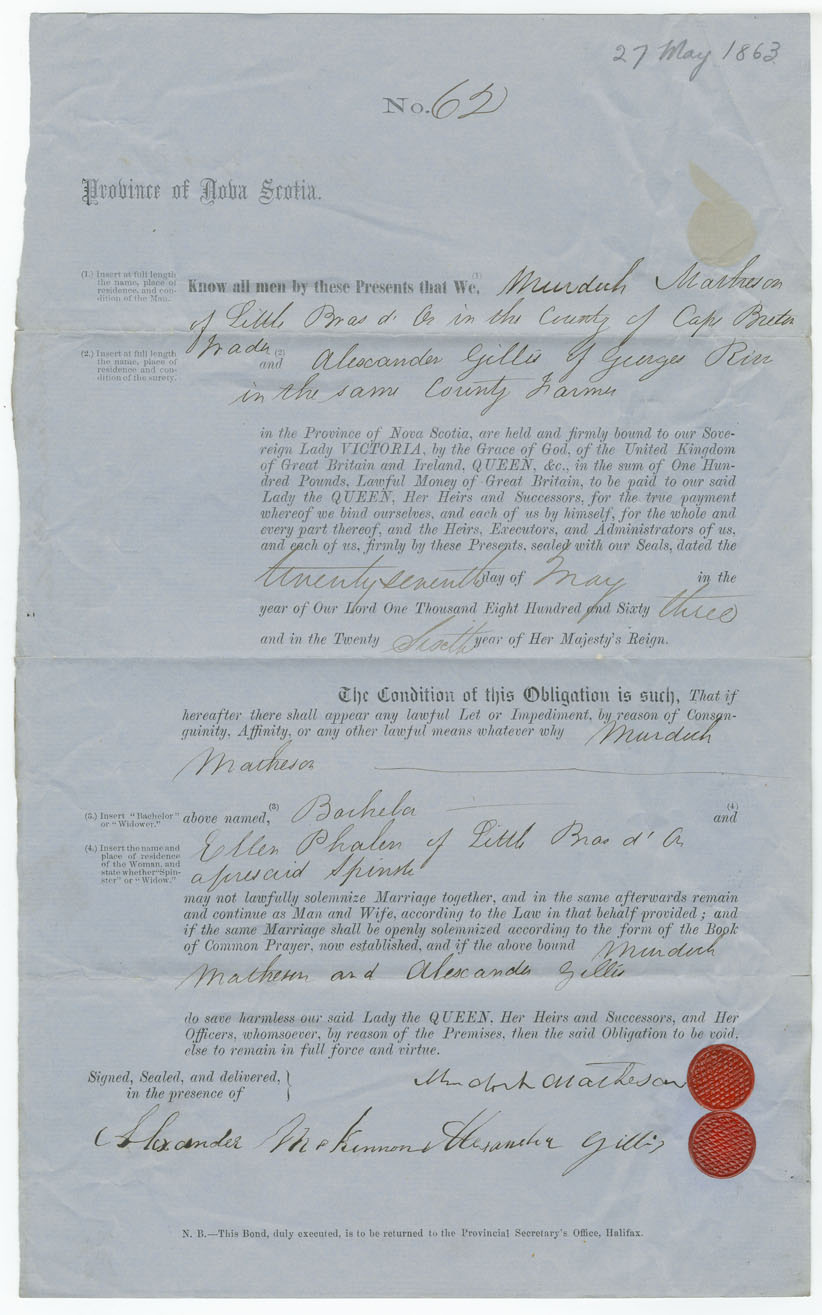 27 May 1863
No. 62
Province of Nova Scotia.
(1.) Insert at full length
the name, place of
residence, and con-
dition of the Man.
Know all men by these Presents that We, (1) Murdoch Matheson
of Little Bras d' Or in the County of Cape Breton
Trader
(2.) Insert at full length
the name, place of
residence and con-
dition of the surety.
and (2) Alexander Gillis of Georges River
in the same County Farmer
in the Province of Nova Scotia, are held and firmly bound to our Sove-
reign Lady VICTORIA, by the Grace of God, of the United Kingdom
of Great Britain and Ireland, QUEEN, &c., in the sum of One Hun-
dred Pounds, Lawful Money of Great Britain, to be paid to our said
Lady the QUEEN, Her Heirs and Successors, for the true payment
whereof we bind ourselves, and each of us by himself, for the whole and
every part thereof, and the Heirs, Executors, and Administrators of us,
and each of us, firmly by these Presents, sealed with our Seals, dated the
twenty seventh day of May in the
year of Our Lord One Thousand Eight Hundred and Sixty three
and in the Twenty Sixth year of Her Majesty's Reign.
The Condition of this Obligation is such, That if
hereafter there shall appear any lawful Let or Impediment, by reason of Consan-
guinity, Affinity, or any other lawful means whatever why Murdoch
Matheson
(3.) Insert "Bachelor"
or "Widower."
above named, (3) Bachelor (4) and
(4.) Insert the name and
place of residence
of the Woman, and
state whether "Spin-
ster" or "Widow."
Ellen Phalen of Little Bras d' Or
aforesaid Spinster
may not lawfully solemnize Marriage together, and in the same afterwards remain
and continue as Man and Wife, according to the Law in that behalf provided; and
if the same Marriage shall be openly solemnized according to the form of the Book
of Common Prayer, now established, and if the above bound Murdoch
Matheson and Alexander Gillis
do save harmless our said Lady the QUEEN, Her Heirs and Successors, and Her
Officers, whomsoever, by reason of the Premises, then the said Obligation to be void,
else to remain in full force and virtue.
Signed, Sealed, and delivered,
in the presence of
Murdoch Matheson
Alexander McKinnon Alexander Gillis
N. B.—This Bond, duly executed, is to be returned to the Provincial Secretary's Office, Halifax.